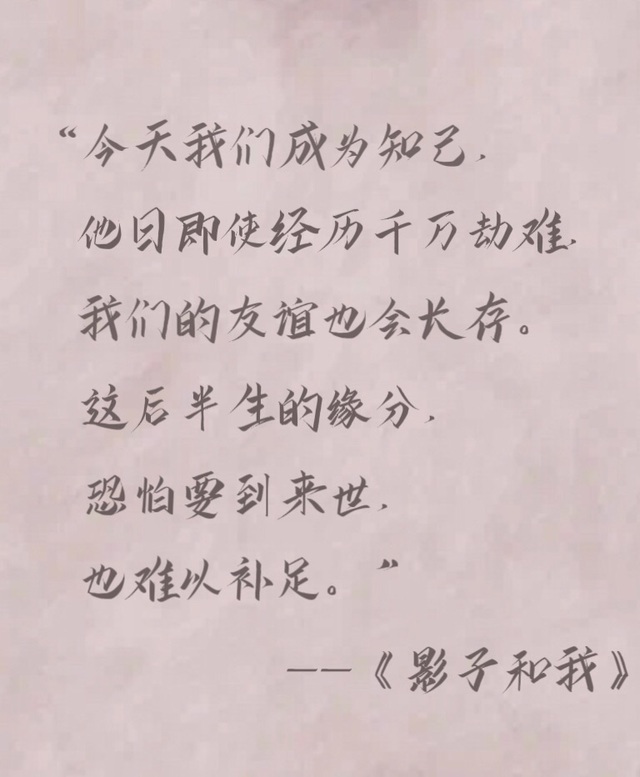 “今天我们成为知己，
他日即使经历千万劫难，
我们的友谊也会长存。
这后半生的缘分，
恐怕要到来世，
也难以补足。”
——《影子和我》